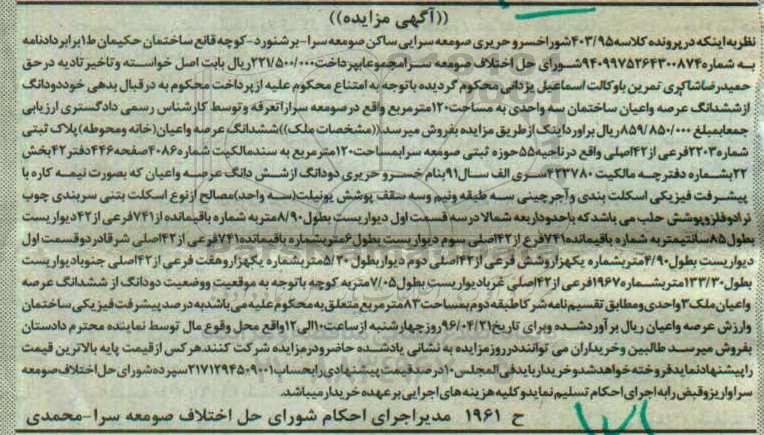 ((آگهی مزایده))
نظر به اینکه در پرونده کلاسه ۴۰۳/۹۵ شورا خسرو حریری صومعه سرایی ساکن صومعه سرا-برشنورد-کوچه قانع ساختمان حکیمان ط۱ برابر دادنامه
به شماره ۹۴۰۹۹۷۵۲۶۴۳۰۰۸۷۴ شورای حل اختلاف صومعه سرا مجموعا بپرداخت ۲۲۱/۵۰۰/۰۰۰ ریال بابت اصل خواسته و تاخیر تادیه در حق
حمیدرضا شاکری تمرین باوکالت اسماعیل یزدانی محکوم گردیده باتوجه به امتناع محکوم علیه از پرداخت محکوم به در قبال بدهی خود دودانگ
از ششدانگ عرصه واعیان ساختمان سه واحدی به مساحت ۱۲۰ مترمربع واقع در صومعه سرا را تعرفه و توسط کارشناس رسمی دادگستری ارزیابی
جمعا بمبلغ ۸۵۹/۸۵۰/۰۰۰ ریال براورد اینک از طریق مزایده بفروش میرسد. ((مشخصات ملک)) ششدانگ عرصه واعیان (خانه ومحوطه) پلاک ثبتی
شماره ۲۲۰۳ فرعی از ۴۲ اصلی واقع در ناحیه ۵۵ حوزه ثبتی صومعه سرا بمساحت ۱۲۰ مترمربع به سند مالکیت شماره ۴۰۸۶ صفحه ۴۴۶ دفتر ۴۲ بخش
۲۲ بشماره دفترچه مالکیت ۴۲۳۷۸۰ سری الف سال ۹۱ بنام خسرو حریری دودانگ از شش دانگ عرصه واعیان که بصورت نیمه کاره با
پیشرفت فیزیکی اسکلت بندی و آجر چینی سه طبقه ونیم وسه سقف پوشش یونیلت (سه واحد) مصالح از نوع اسکلت بتنی سربندی چوب
نراد و فلز و پوشش حلب می باشد که باحدود اربعه شمالا در سه قسمت اول دیواریست بطول ۸/۹۰ متر به شماره باقیمانده از ۷۴۱ فرعی از ۴۲ دیواریست
بطول ۸۵ سانتیمتر به شماره باقیمانده ۷۴۱ فرع از ۴۲ اصلی سوم دیواریست بطول ۶ متر بشماره باقیمانده ۷۴۱ فرعی از ۴۲ اصلی شرقا در دو قسمت اول
دیواریست بطول ۴/۹۰ متر بشماره یکهزار و شش فرعی از ۴۲ اصلی دوم دیوار بطول ۵/۲۰ متر بشماره یکهزار و هفت فرعی از ۴۲ اصلی جنوبا دیواریست
بطول ۱۳۳/۳۰ متر بشماره ۱۹۶۷ فرعی از ۴۲ اصلی غربا دیواریست بطول ۷/۰۵ متر به کوچه باتوجه به موقعیت ووضعیت دودانگ از ششدانگ عرصه
واعیان ملک ۳ واحدی و مطابق تقسیم نامه شرکا طبقه دوم بمساحت ۸۳ متر مربع متعلق به محکوم علیه می باشد به درصد پیشرفت فیزیکی ساختمان
وارزش عرصه واعیان ریال برآورد شده و برای تاریخ ۹۶/۰۴/۲۱ روز چهارشنبه از ساعت ۱۰ الی ۱۲ واقع محل وقوع مال توسط نماینده محترم دادستان
بفروش میرسد طالبین و خریداران می توانند در روز مزایده به نشانی یاد شده حاضر و در مزایده شرکت کنند. هر کس از قیمت پایه بالاترین قیمت
را پیشنهاد نماید فروخته خواهد شد و خریدار باید فی المجلس ۱۰ درصد قیمت پیشنهادی را بحساب ۲۱۷۱۲۹۴۵۰۹۰۰۱ سپرده شورای حل اختلاف صومعه
سرا واریز و قبض را به اجرای احکام تسلیم نماید و کلیه هزینه های اجرایی بر عهده خریدار میباشد.
ح ۱۹۶۱ مدیر اجرای احکام شورای حل اختلاف صومعه سرا-محمدی